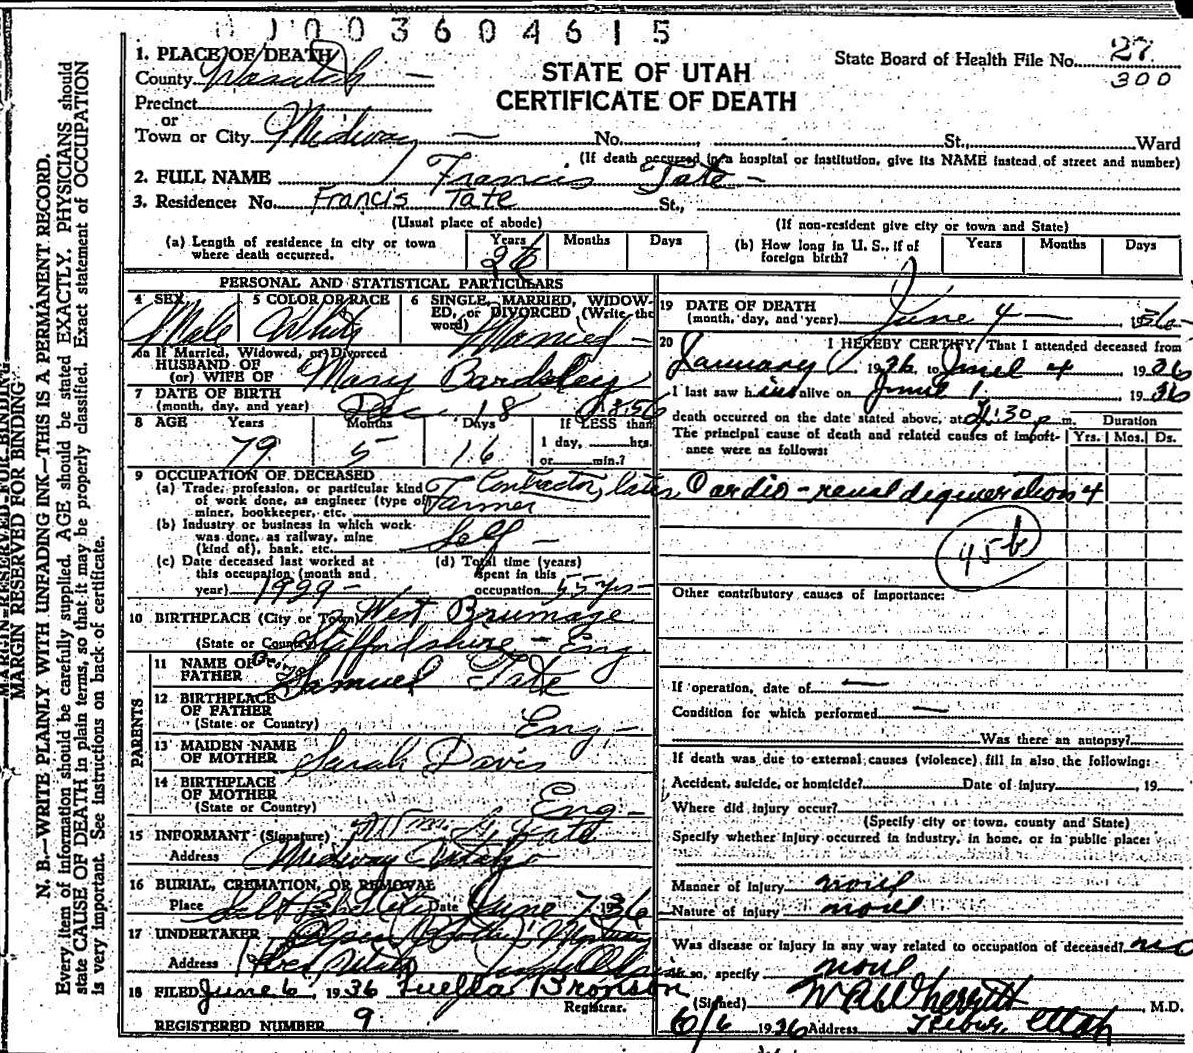 003604615
1. PLACE OF DEATH
County Wasatch
STATE OF UTAH
CERTIFICATE OF DEATH
State Board of Health File No. 27
300
Precinct
or
Town or City Midway No. St., Ward
(If death occurred in a hospital or institution, give its NAME instead of street and number)
2. FULL NAME Francis Tate
3. Residence: No. Francis Tate St.,
(Usual place of abode) (If non-resident give city or town and State)
(a) Length of residence in city or town where death occurred. Years Months Days
(b) How long in U. S., if of foreign birth? Years Months Days
PERSONAL AND STATISTICAL PARTICULARS
4 SEX 5 COLOR OR RACE 6 SINGLE, MARRIED, WIDOWED, or DIVORCED (Write the word)
Male White Married
5a If Married, Widowed, or Divorced
HUSBAND OF
(or) WIFE OF Mary Bardsley
7 DATE OF BIRTH
(month, day, and year) Dec. 18 1856
8 AGE Years Months Days If LESS than
79 5 16 1 day, hrs.
or min.?
9 OCCUPATION OF DECEASED
(a) Trade, profession, or particular kind of work done, as engineer (type of miner, bookkeeper, etc. Contractor, later Farmer
(b) Industry or business in which work was done, as railway, mine (kind of), bank, etc. Self
(c) Date deceased last worked at this occupation (month and year) 1929
(d) Total time (years) spent in this occupation 55 yrs
10 BIRTHPLACE (City or Town) West Brumage
(State or Country) Staffordshire - Eng
PARENTS
11 NAME OF FATHER George Samuel Tate
12 BIRTHPLACE OF FATHER
(State or Country) Eng
13 MAIDEN NAME OF MOTHER Sarah Davis
14 BIRTHPLACE OF MOTHER
(State or Country) Eng
15 INFORMANT (Signature) Wm. G. Tate
Address Midway Utah
16 BURIAL, CREMATION, OR REMOVAL
Place Salt Lake City Date June 7, 1936
17 UNDERTAKER
Address
18 FILED June 6, 1936 Luella Bronson
Registrar.
REGISTERED NUMBER 9
19 DATE OF DEATH
(month, day, and year) June 4 1936
20 I HEREBY CERTIFY, That I attended deceased from
January 1936, to June 4 1936
I last saw him alive on June 1 1936
death occurred on the date stated above, at p m.
Duration
The principal cause of death and related causes of importance were as follows: Yrs. Mos. Ds.
Cardio-renal degeneration 4
95b
Other contributory causes of importance:
If operation, date of
Condition for which performed
Was there an autopsy?
If death was due to external causes (violence) fill in also the following:
Accident, suicide, or homicide? Date of injury , 19
Where did injury occur?
(Specify city or town, county and State)
Specify whether injury occurred in industry, in home, or in public place:
Manner of injury none
Nature of injury none
Was disease or injury in any way related to occupation of deceased? no
If so, specify none
(Signed) , M.D.
6/6 1936 Address Heber Utah
MARGIN RESERVED FOR BINDING
MARGIN RESERVED FOR BINDING
N. B.—WRITE PLAINLY WITH UNFADING INK—THIS IS A PERMANENT RECORD.
Every item of information should be carefully supplied. AGE should be stated EXACTLY. PHYSICIANS should
state CAUSE OF DEATH in plain terms, so that it may be properly classified. Exact statement of OCCUPATION
is very important. See instructions on back of certificate.